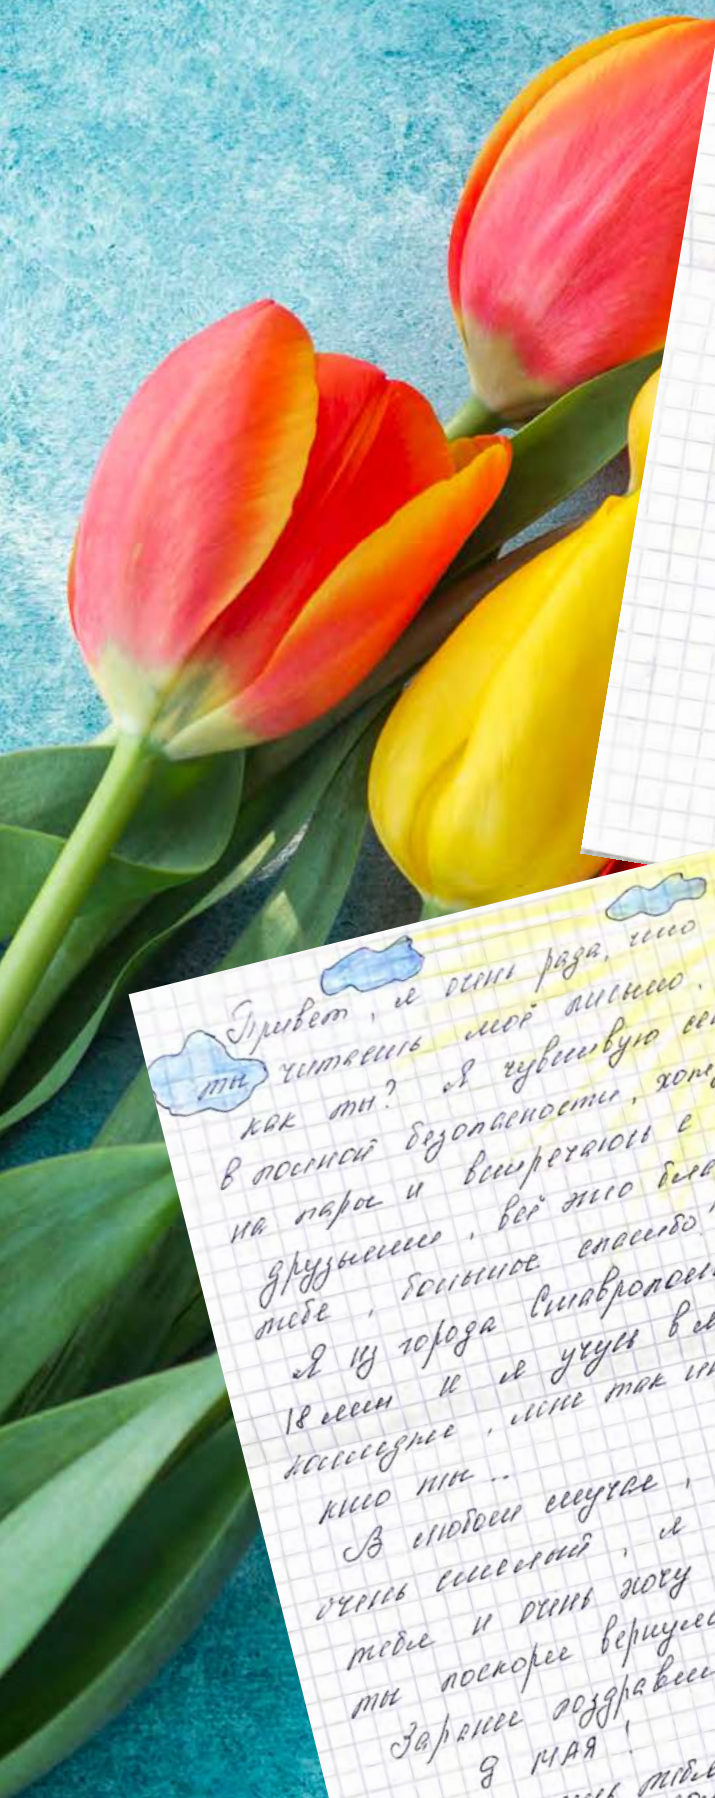 Привет, я очень рада, что
ты читаешь моё письмо.
как ты? Я чувствую
в полной безопасности, хожу
на пары и встречаюсь с
друзьями, всё это
тебе, большое спасибо!
Я из города
18 лет и я учусь в
колледже, мне так
кто ты..
В любом случае,
очень смелый, я
тебя и очень хочу
ты поскорее
Заранее
9 МАЯ!